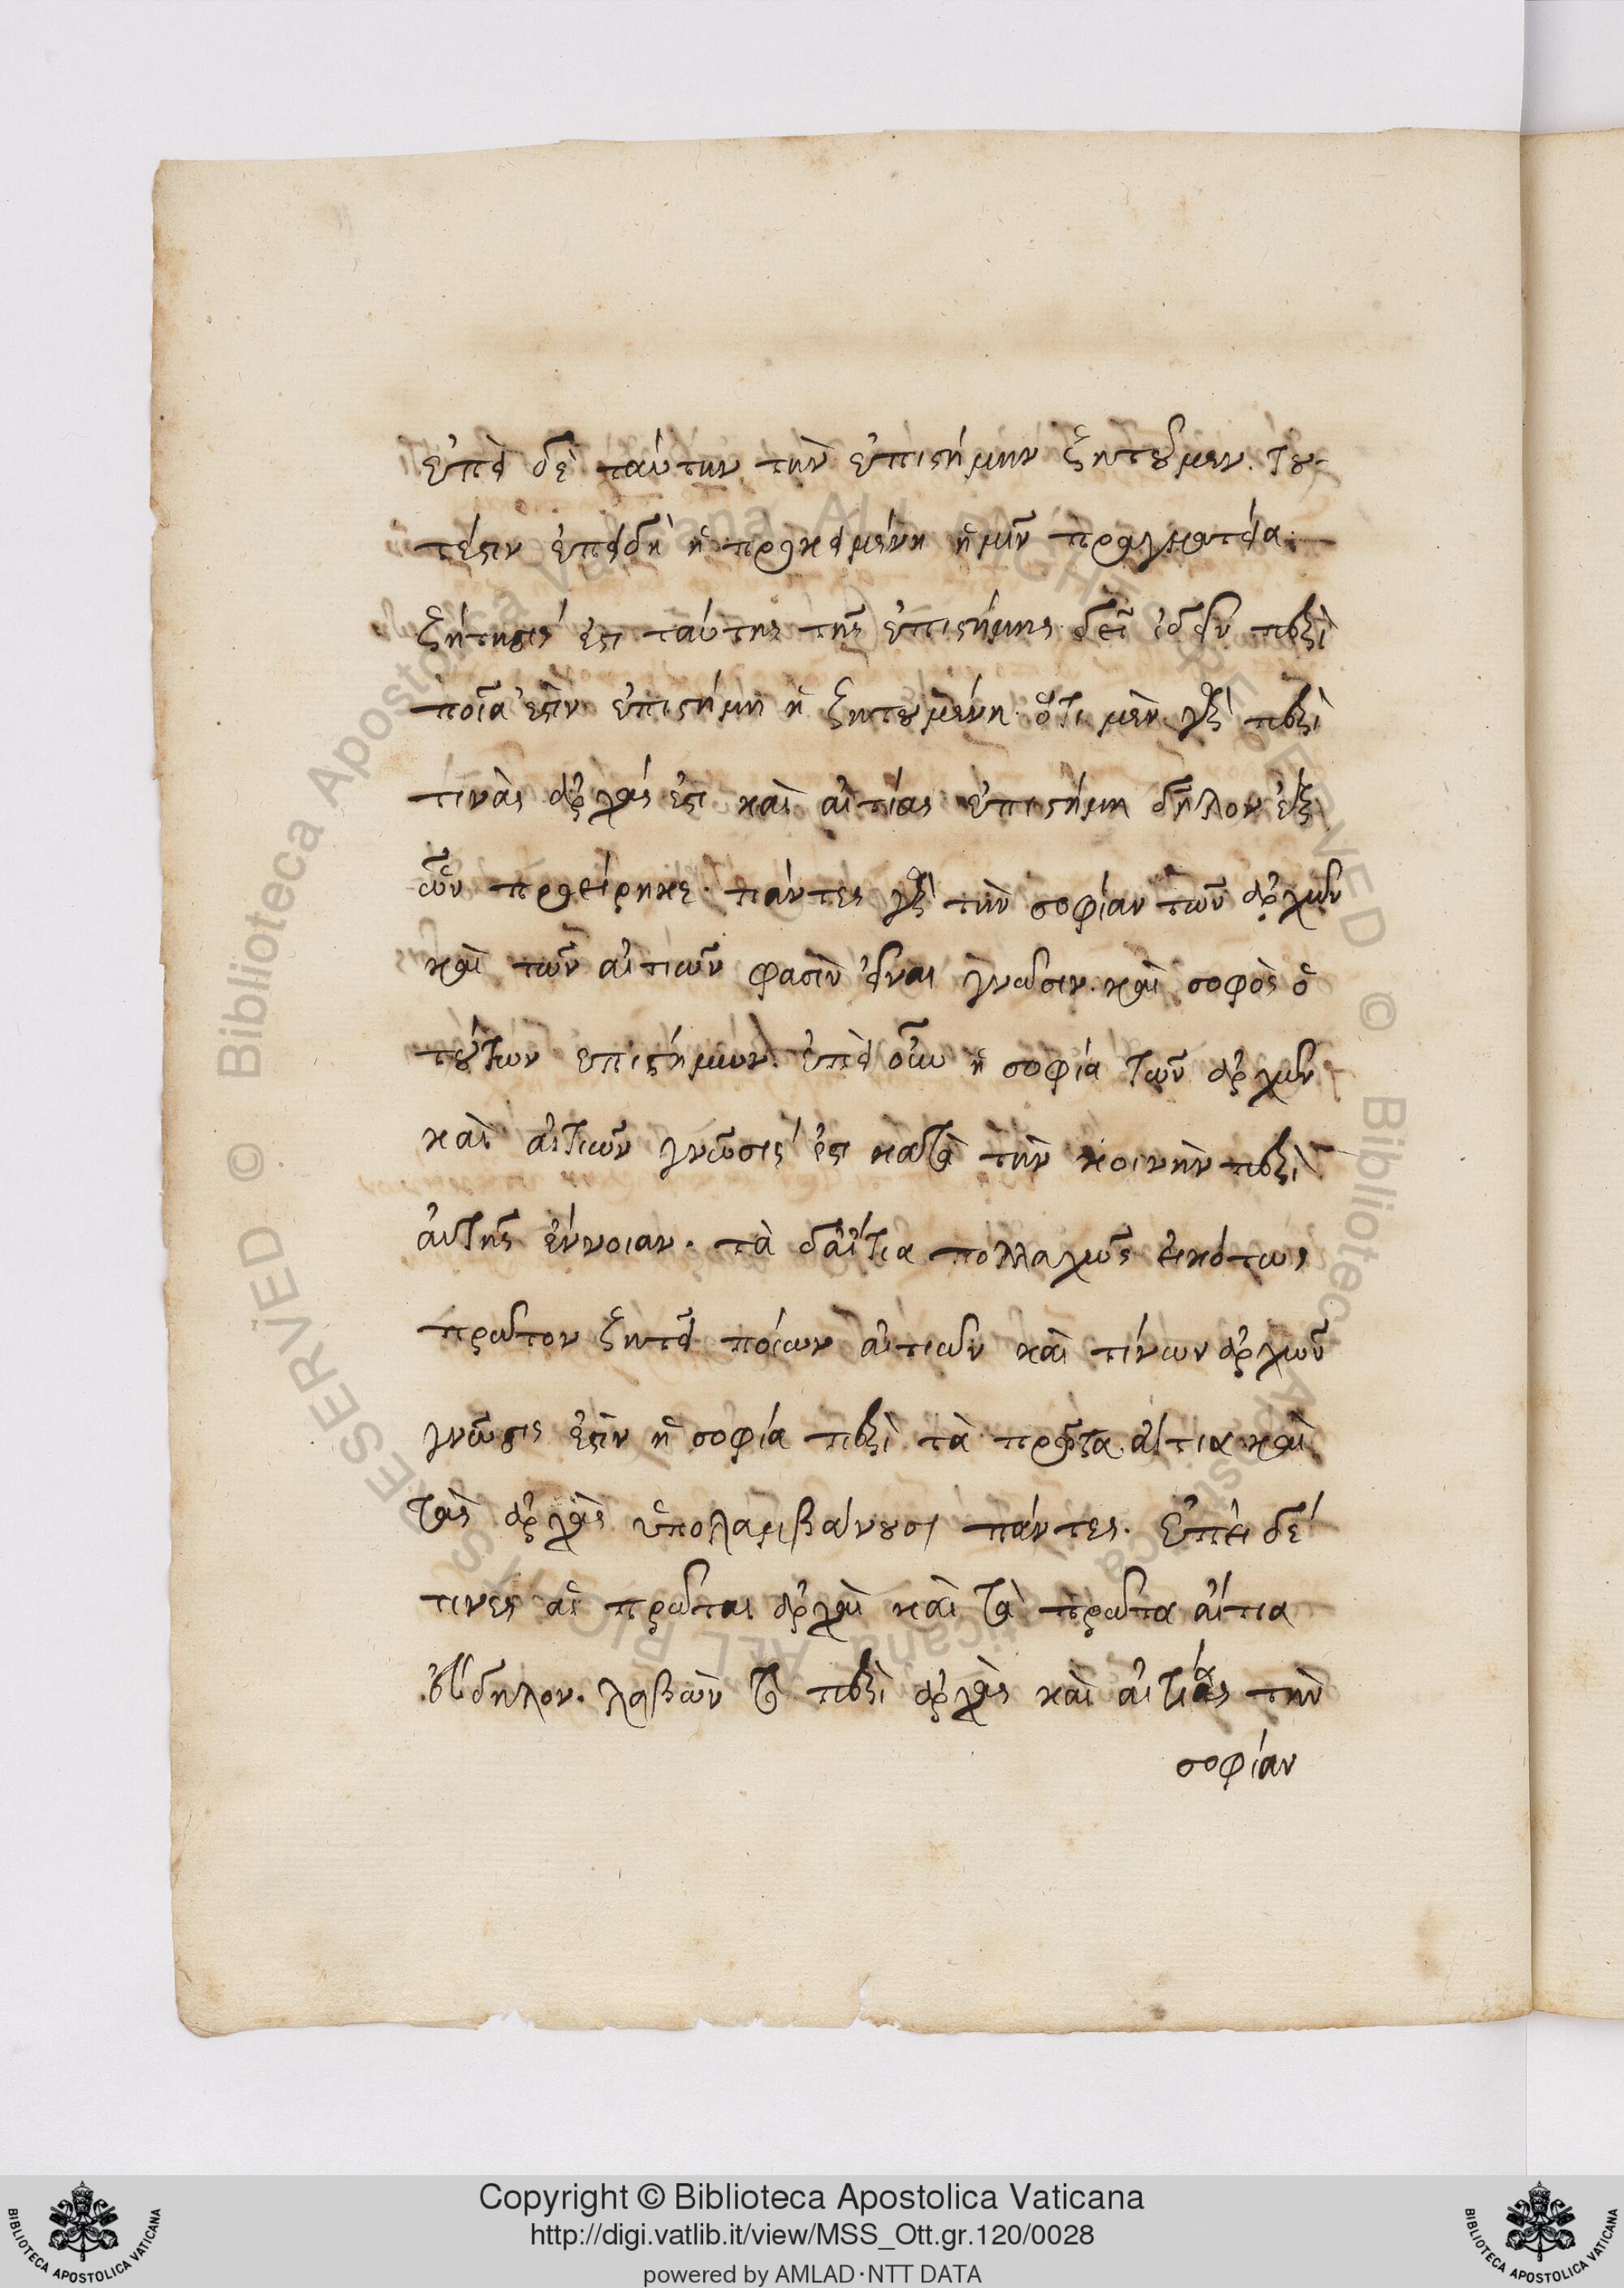 ἐπεὶ δὲ ταύτην τὴν ἐπιστήμην ζητοῦμεν. του-
τέστιν ἐπειδὴ ἡ προκειμένη ἡμῖν πραγματεία
ζήτησίς ἐστι ταύτης τῆς ἐπιστήμης δεῖ ἰδεῖν περὶ
ποῖα ἐστὶν ἐπιστήμη ἡ ζητουμένη. ὅτι μὲν γὰρ περὶ
τινὰς ἀρχάς ἐστι καὶ αἰτίας ἐπιστήμη δῆλον ἐξ
ὧν προείρηκε. πάντες γὰρ τὴν σοφίαν τῶν ἀρχῶν
καὶ τῶν αἰτιῶν φασὶν εἶναι γνῶσιν. καὶ σοφὸς ὁ
τούτων ἐπιστήμων. ἐπεὶ οὖν ἡ σοφία τῶν ἀρχῶν
καὶ αἰτιῶν γνῶσίς ἐστι κατὰ τὴν κοινὴν περὶ
αὐτῆς ἔννοιαν. τὰ δ' αἴτια πολλαχῶς εἰκότως
πρῶτον ζητεῖ ποίων αἰτιῶν καὶ τίνων ἀρχῶν
γνῶσις ἐστὶν ἡ σοφία περὶ τὰ πρῶτα αἴτια καὶ
τὰς ἀρχὰς ὑπολαμβάνουσι πάντες. ἐπεὶ δέ
τινες αἱ πρῶται ἀρχαὶ καὶ τὰ πρῶτα αἴτια
οὐ δῆλον. λαβὼν τὸ περὶ ἀρχὰς καὶ αἰτίας τὴν
σοφίαν
Copyright © Biblioteca Apostolica Vaticana
http://digi.vatlib.it/view/MSS_Ott.gr.120/0028
powered by AMLAD·NTT DATA
BIBLIOTECA APOSTOLICA VATICANA
BIBLIOTECA APOSTOLICA VATICANA